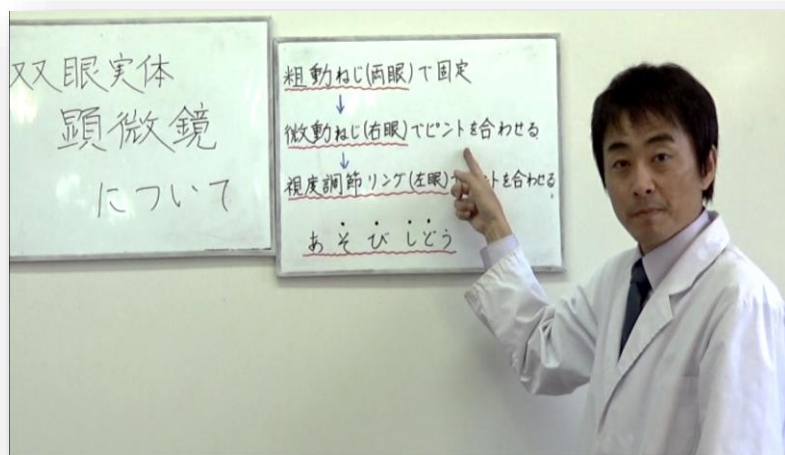 双眼実体
顕微鏡
について
粗動ねじ(両眼)で固定
↓
微動ねじ(右眼)でピントを合わせる
↓
視度調節リング(左眼) ントを合わせる
あそびしどう